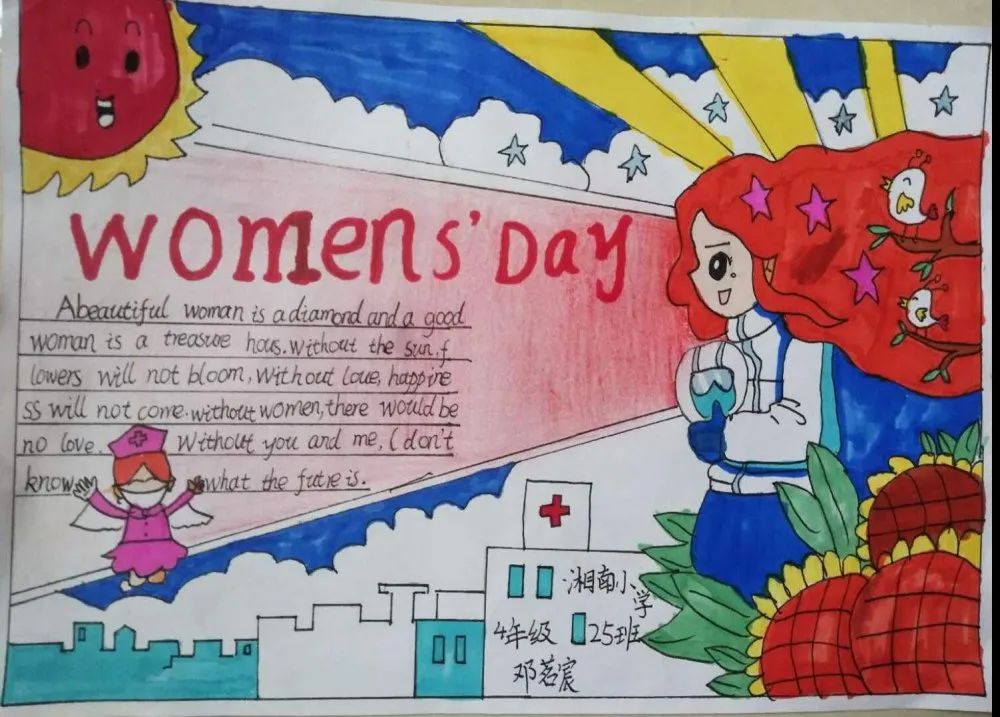 Womens' Day
A beautiful woman is a diamond and a good
woman is a treasure hous. without the sun, f
lowers will not bloom, without love, happine
ss will not come. without women, there would be
no love. Without you and me, I don't
know what the future is.
湘南小学
4年级 25班
邓茗宸